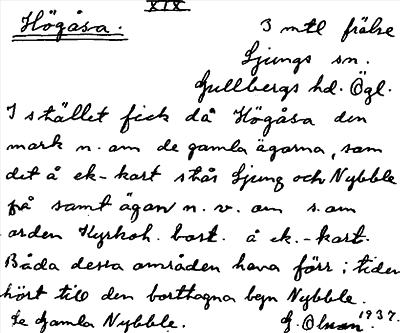 XIX
Högåsa.
3 mtl frälse
Ljungs sn.
Gullbergs hd. Ögl.
I stället fick då Högåsa den
mark n. om de gamla ägorna, som
det å ek-kart står Ljung och Nybble
på samt ägan n. v. om s. om
orden Kyrkoh. bost. å ek.-kart.
Båda dessa områden hava förr i tiden
hört till den borttagna byn Nybble.
Se Gamla Nybble.
G. Olsson 1937.